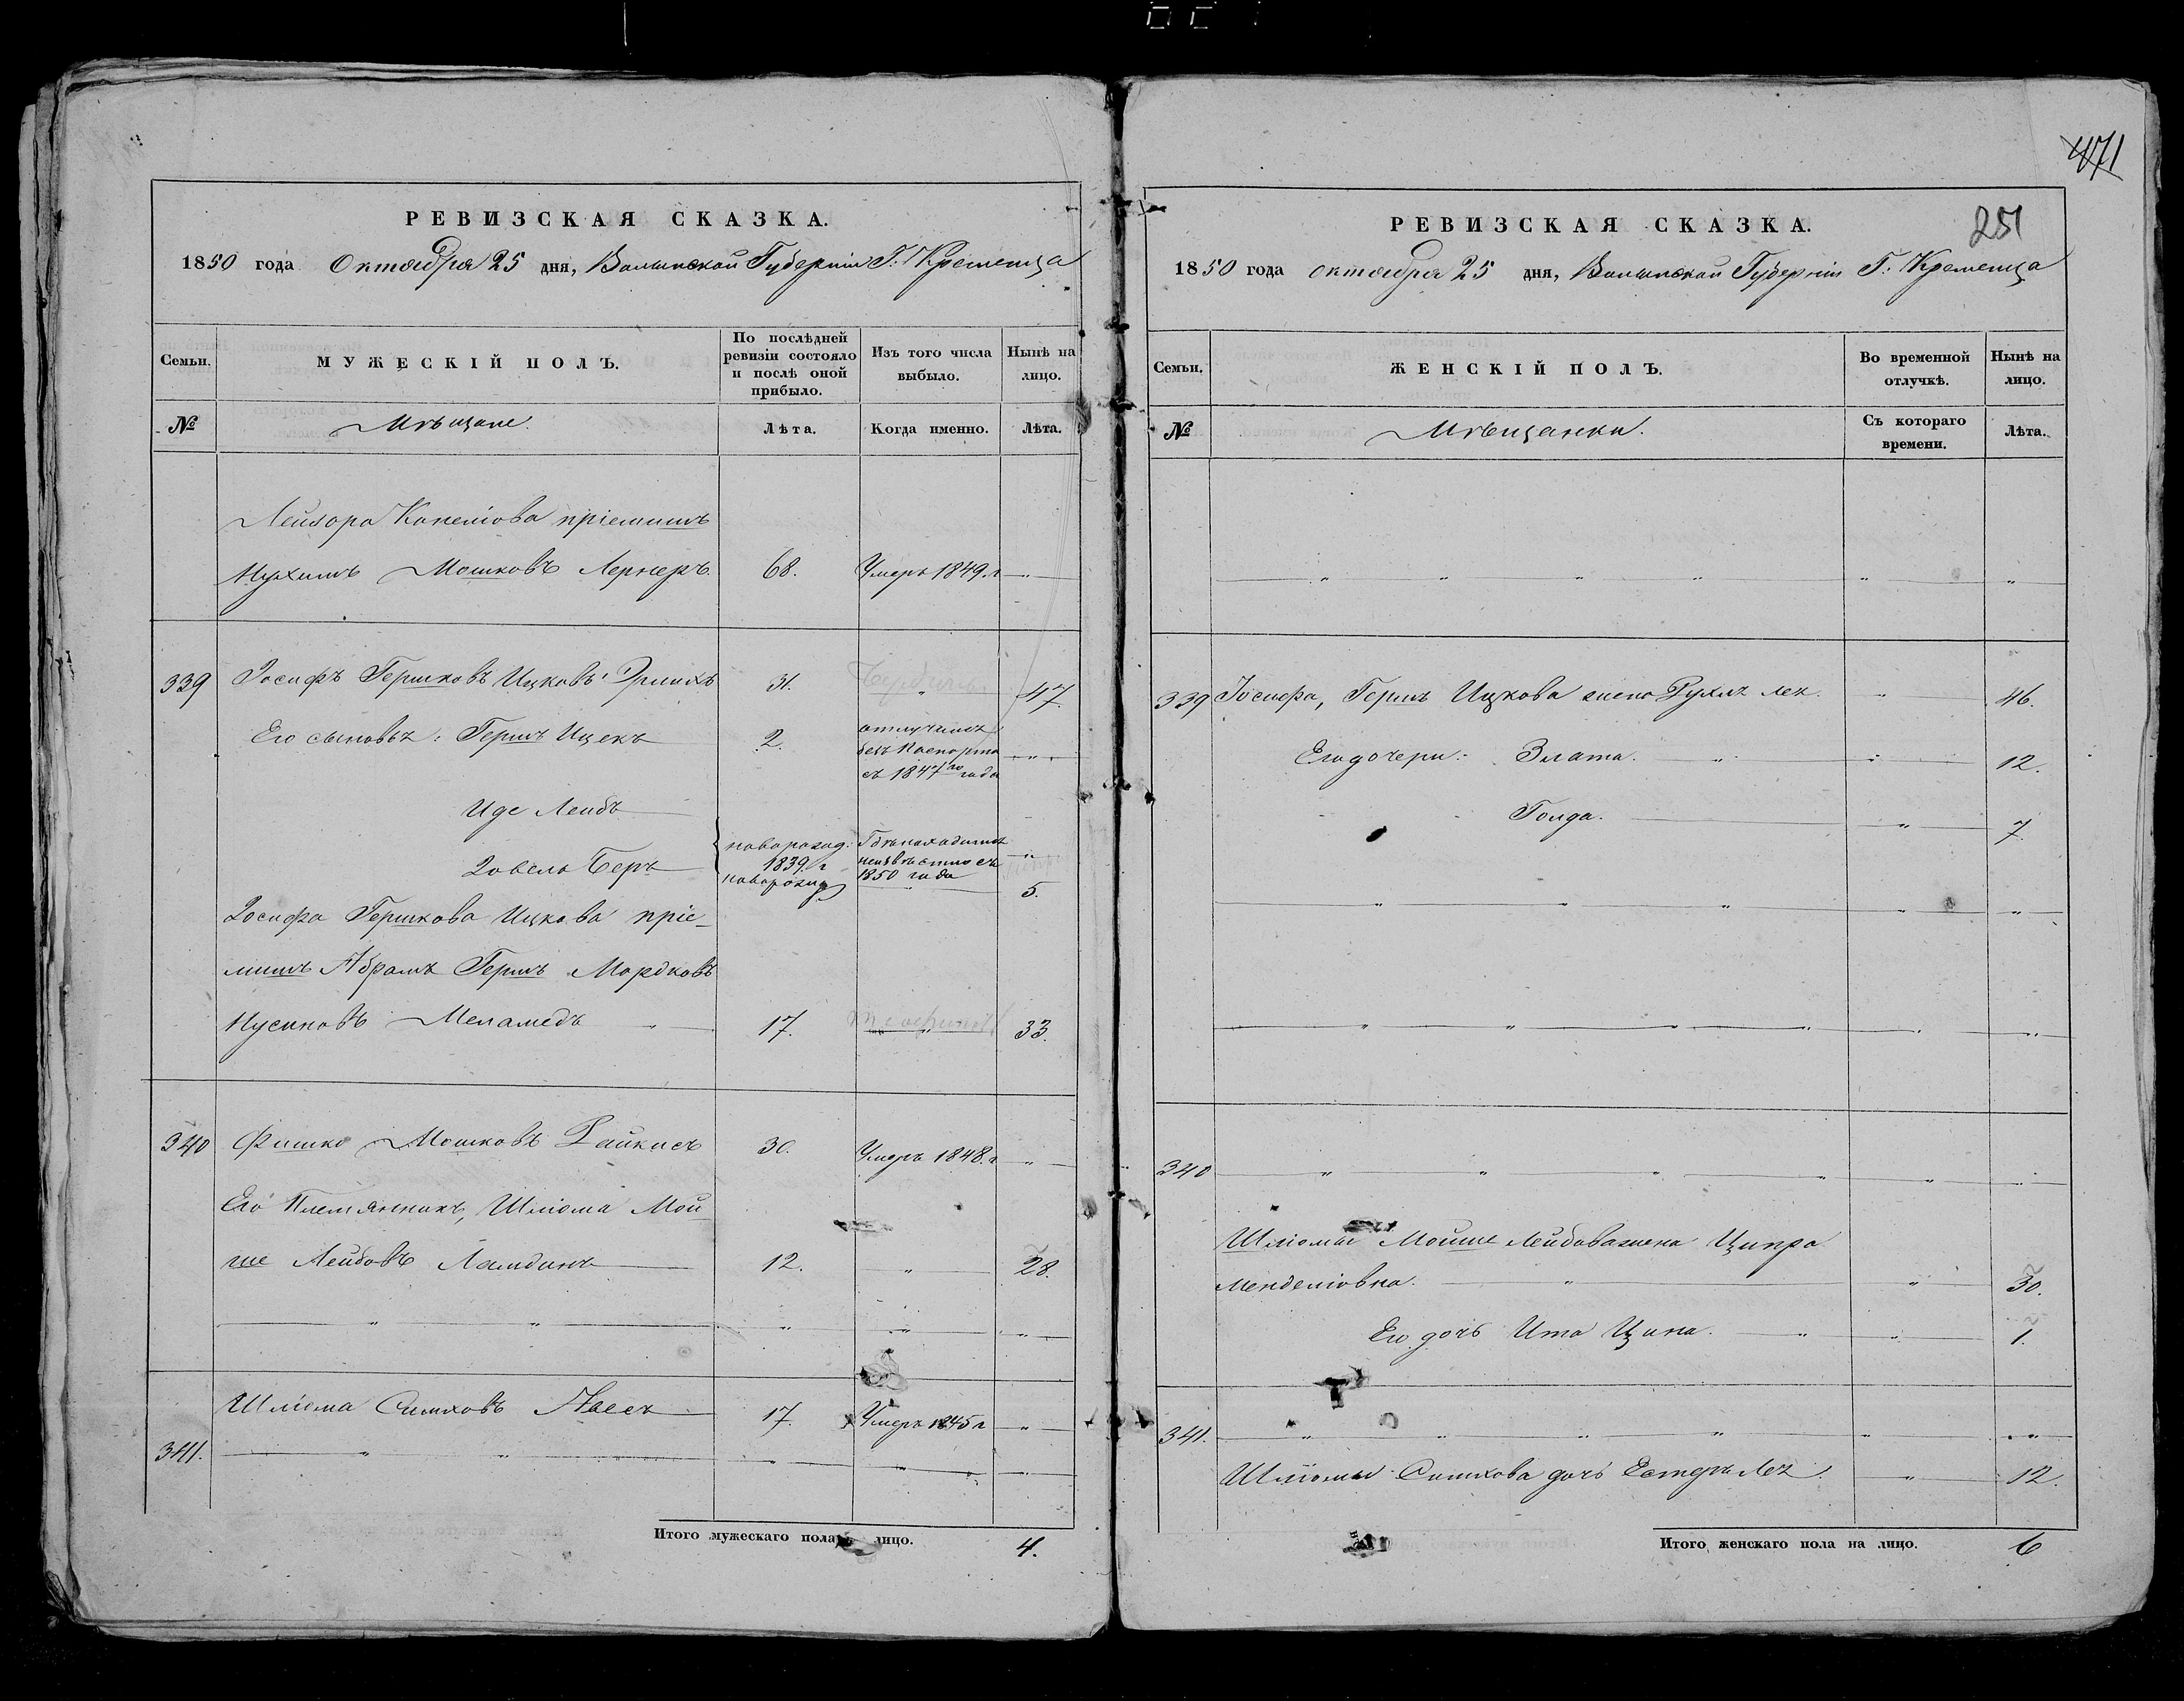 РЕВИЗСКАЯ СКАЗКА.
1850 года Октября 25 дня, Волынской Губерніи Г. Кременца
Семьи.
МУЖЕСКІЙ ПОЛЪ.
По послѣдней ревизіи состояло и послѣ оной прибыло.
Изъ того числа выбыло.
Нынѣ на лицо.
№
Мѣщане.
Лѣта.
Когда именно.
Лѣта.
Лейзора пріемышъ
Нухимъ Мошковъ Лернеръ. 68. Умеръ 1849. г „
339 Іосифъ Гершковъ Ицковъ 31. „ 47.
Его сыновья: Гершъ Ицекъ 2. отлучился
безъ Паспорта
съ 1847го года
Иде Лейбъ
новорожд: 1839 г
Гдѣ находится неизвѣстно съ 1850 года
Іовель Беръ новорожд „ 5.
Іосифа Гершкова Ицкова пріе-
мышъ Абрамъ Гершъ Мордковъ
Нусиновъ Меламедъ „ 17. „ 33.
340 Фишко Мошковъ Райкисъ 30. Умеръ 1848. г „
Его Племянникъ, Шліома Мой-
ше Лейбовъ Ламдинъ 12. „ 28.
„ „ „ „ „
Шліома Симховъ 17. Умеръ 1845 г „
341. „ „ „ „ „
Итого мужескаго пола лицо. 4.
471
251
РЕВИЗСКАЯ СКАЗКА.
1850 года октября 25 дня, Волынской Губерніи Г. Кременца
Семьи.
ЖЕНСКІЙ ПОЛЪ.
Во временной отлучкѣ.
Нынѣ на лицо.
№
Мѣщанки.
Съ котораго времени.
Лѣта.
„ „ „ „ „ „
339 Іосифа, Гершъ Ицкова жена Рухля Лея. „ 46.
Его дочери: Злата. „ „ 12.
Голда. „ 7.
„ „ „ „ „
„ „ „ „ „ „
340 „ „ „ „ „ „
Шліомы Мойше Лейбова жена Ципра
Менделіовна. „ „ 30.
Его дочь Ита Ципа. „ „ 1.
341. „ „ „ „ „ „
Шліомы Симхова дочь Естеръ Лея. „ 12.
Итого женскаго пола на лицо. 6